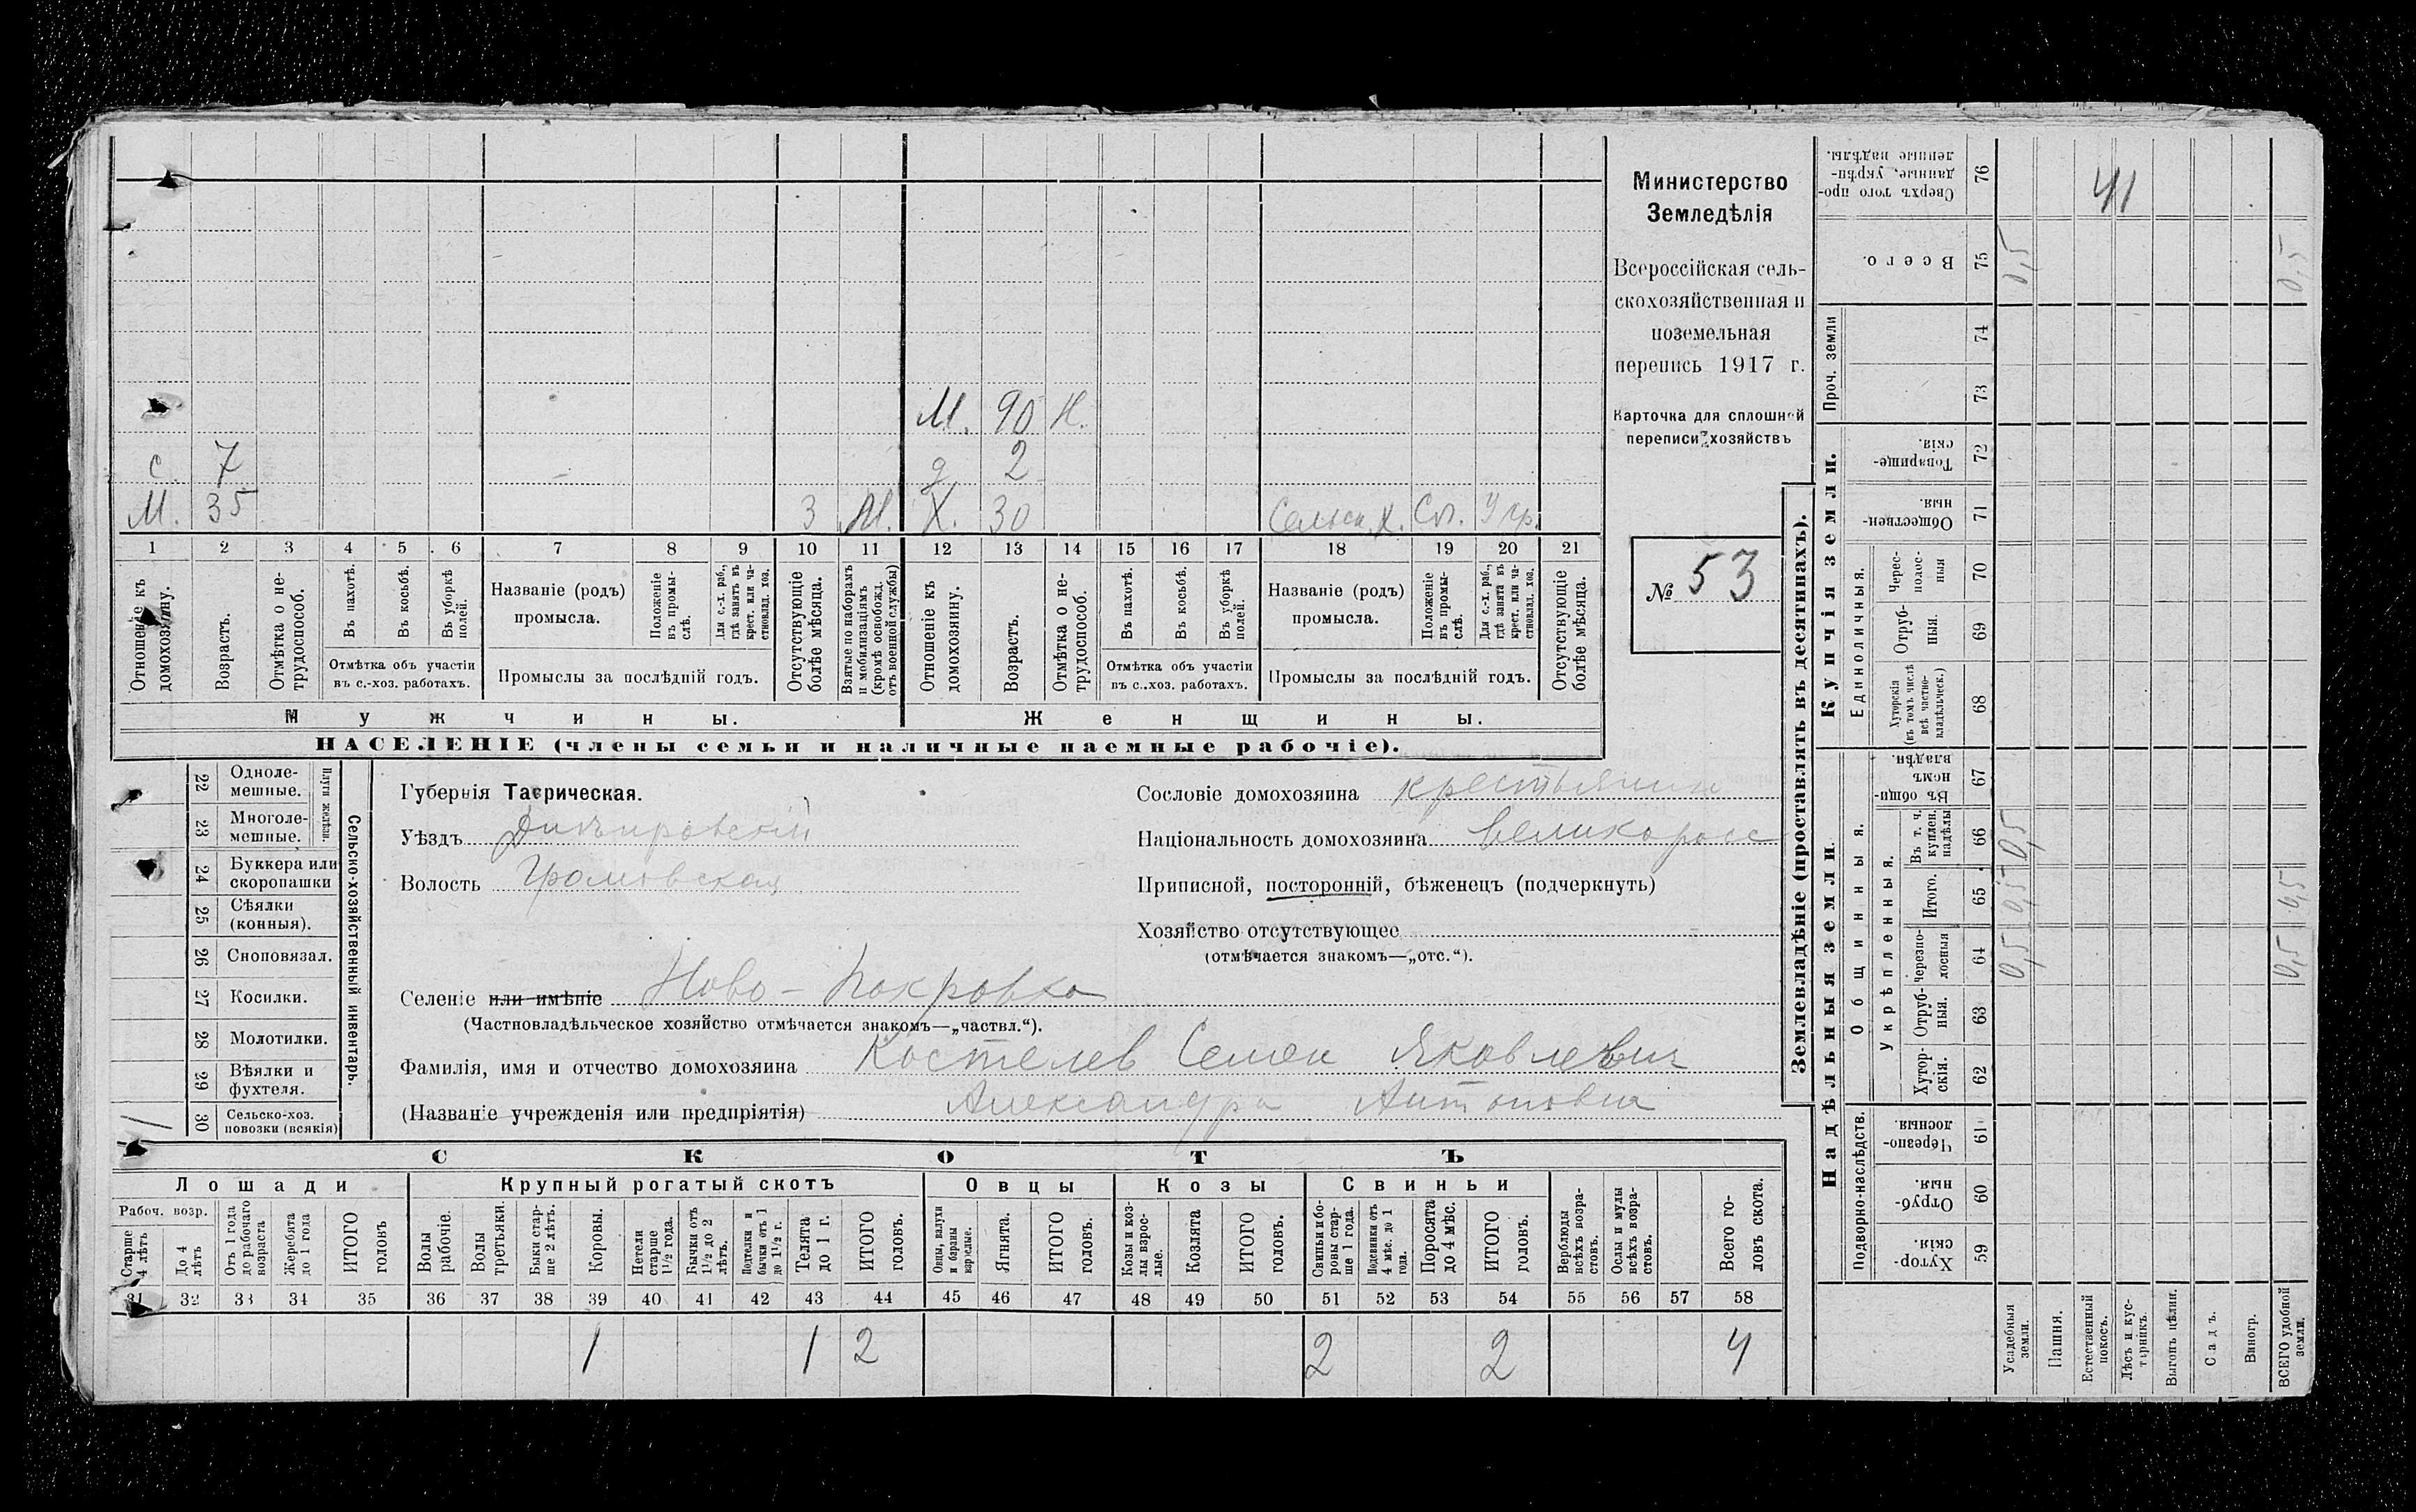 М. 90 Н.
с 7 д 2
М. 35 3 М. Х. 30 Сельск. х. Сп. У кр.
1 2 3 4 5 6 7 8 9 10 11 12 13 14 15 16 17 18 19 20 21
Отношеніе къ домохозяину.
Возрастъ.
Отмѣтка о не-
трудоспособ.
Въ пахотѣ.
Въ косьбѣ.
Въ уборкѣ
полей.
Отмѣтка объ участіи
въ с.-хоз. работахъ.
Названіе (родъ)
промысла.
Положеніе
въ промы-
слѣ.
Для с.-х. раб.,
гдѣ занятъ въ
крест. или ча-
стновлад. хоз.
Промыслы за послѣдній годъ.
Отсутствующіе
болѣе мѣсяца.
Взятые по наборамъ
и мобилизаціямъ
(кромѣ освобожд.
отъ военной службы)
Отношеніе къ
домохозяину.
Возрастъ.
Отмѣтка о не-
трудоспособ.
Въ пахотѣ.
Въ косьбѣ.
Въ уборкѣ
полей.
Отмѣтка объ участіи
въ с..хоз. работахъ.
Названіе (родъ)
промысла.
Положеніе
въ промы-
слѣ.
Для с.-х. раб.,
гдѣ занята въ
крест. или ча-
стновлад. хоз.
Промыслы за послѣдній годъ.
Отсутствующіе
болѣе мѣсяца.
Мужчины.
Женщины.
НАСЕЛЕНІЕ (члены семьи и наличные наемные рабочіе).
Министерство
Земледѣлія
Всероссійская сель-
скохозяйственная и
поземельная
перепись 1917 г.
Карточка для сплошной
переписи хозяйствъ
№ 53
22 Одноле-
мешные.
23 Многоле-
мешные.
Плуги желѣзн.
24 Буккера или
скоропашки
25 Сѣялки
(конныя).
26 Сноповязал.
27 Косилки.
28 Молотилки.
29 Вѣялки и
фухтеля.
1 30 Сельско-хоз.
повозки (всякія)
Сельско-хозяйственный инвентарь.
Губернія Таврическая.
Уѣздъ Днѣпровскій
Волость Громовская
Селеніе или имѣніе Ново-Покровка
(Частновладѣльческое хозяйство отмѣчается знакомъ—„частвл.“).
Фамилія, имя и отчество домохозяина Костелев Семен Яковлевич
(Названіе учрежденія или предпріятія) Александра Антоновна
Сословіе домохозяина крестьянин
Національность домохозяина великоросс
Приписной, посторонній, бѣженецъ (подчеркнуть)
Хозяйство отсутствующее
(отмѣчается знакомъ—„отс.“).
СКОТЪ
Лошади
Крупный рогатый скотъ
Овцы
Козы
Свиньи
Рабоч. возр.
Старше
4 лѣтъ
До 4
лѣтъ
Отъ 1 года
до рабочаго
возраста
Жеребята
до 1 года
ИТОГО
головъ
Волы
рабочіе.
Волы
третьяки.
Быки стар-
ше 2 лѣтъ.
Коровы.
Нетели
старше
1½ года.
Бычки отъ
1½ до 2
лѣтъ.
Подтелки и
бычки отъ 1
до 1½ г.
Телята
до 1 г.
ИТОГО
головъ.
Овцы, валухи
и бараны
взрослые.
Ягнята.
ИТОГО
головъ.
Козы и коз-
лы взрос-
лые.
Козлята
ИТОГО
головъ.
Свиньи и бо-
ровы стар-
ше 1 года.
Подсвинки отъ
4 мѣс. до 1
года.
Поросята
до 4 мѣс.
ИТОГО
головъ.
Верблюды
всѣхъ возра-
стовъ.
Ослы и мулы
всѣхъ возра-
стовъ.
Всего го-
ловъ скота.
31 32 33 34 35 36 37 38 39 40 41 42 43 44 45 46 47 48 49 50 51 52 53 54 55 56 57 58
1 1 2 2 2 4
Землевладѣніе (проставлять въ десятинахъ).
Сверхъ того про-
данные, укрѣп-
ленные надѣлы.
76 41
Всего.
75 0,5 0,5
Проч. земли
74
73
Купчія земли.
Товарище-
скія.
72
Обществен-
ныя.
71
Единоличныя.
Черес-
полос-
ныя
70
Отруб-
ныя.
69
Хуторскія
(въ томъ числѣ
всѣ частно-
владѣльческ.)
68
Надѣльныя земли
Общинныя.
Въ общин-
номъ
владѣн.
67
Укрѣпленныя.
Въ т. ч.
куплен.
надѣлы
66 0,5
Итого.
65 0,5 0,5
Черезпо-
лосныя
64 0,5 0,5
Отруб-
ныя.
63
Хутор-
скія.
62
Подворно-наслѣдств.
Черезпо-
лосныя.
61
Отруб-
ныя.
60
Хутор-
скія.
59
Усадебныя
земли.
Пашня.
Естественный
покосъ.
Лѣсъ и кус-
тарникъ.
Выгонъ цѣлин.
Садъ.
Виногр.
ВСЕГО удобной
земли.